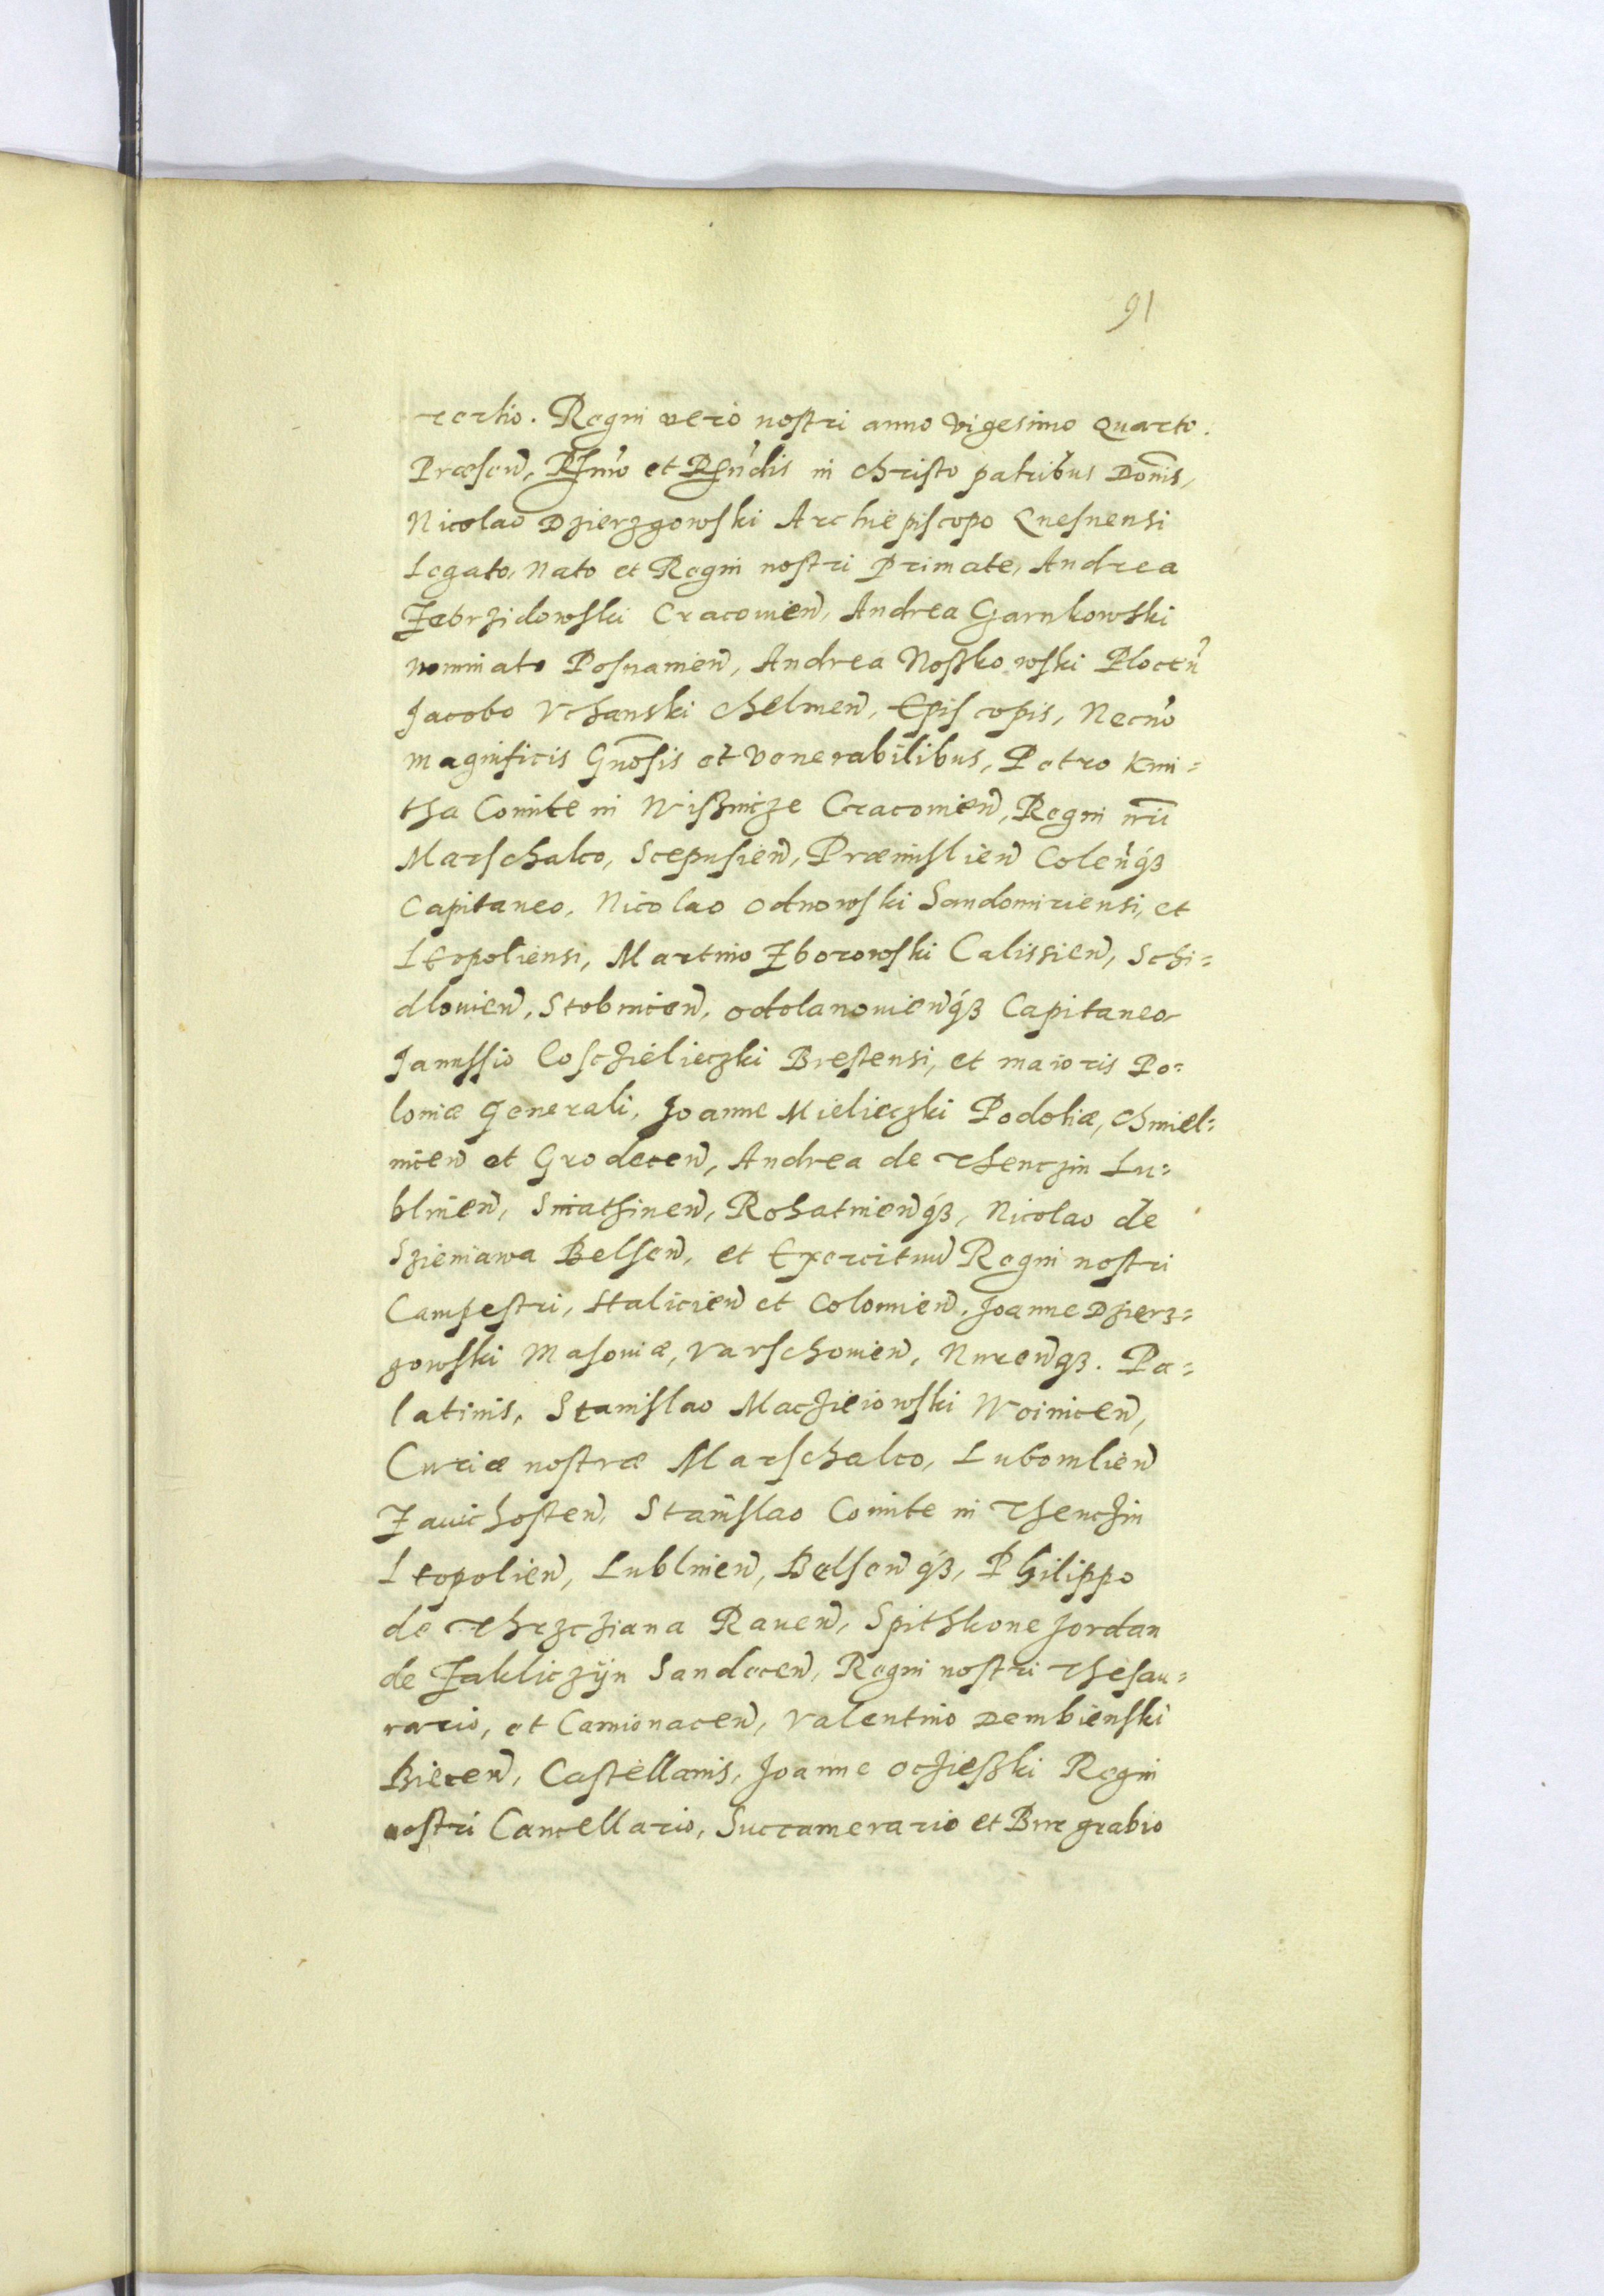 91
tertio. Regni vero nostri anno Vigesimo Quarto.
Præsen, Rssmo et Rssndis in Christo patribus Domis,
Nicolao Dzierzgowski Archiepiscopo Gnesnensi
Legato, Nato et Regni nostri Primate, Andrea
Zebrzidowski Cracovien, Andrea Czarnkowski
nominato Posnamien, Andrea Noskowski Plocen
Jacobo Vchanski Chelmen, Episcopis, Necno
magnificis Gnosis et Venerabilibus, Petro Kmi=
tha Comite in Wissnicze Cracovien, Regni nri
Marschalco, Scepusien, Præmislien Colenqz
Capitaneo, Nicolao Odnowski Sandomiriensi, et
Leopoliensi, Martino Zborowski Calissien, Schi=
dlovien, Stobnicen, Odolanovienqz Capitaneo
Janussio Coschielieczki Brestensi, et maioris Po=
loniæ generali, Joanne Mieliczki Podoliæ, Chmiel=
nicen et Grodecen, Andrea de Thenczin Lu=
blinen, Sniathinen, Rohatinenqz, Nicolao de
Szieniawa Belsen, et Exercituu Regni nostri
Campestri, Halicien et Colomien, Joanne Dzierz=
gowski Masoviæ, Varschovien, Nurenqz. Pa=
latinis, Stanislao Macziiowski Woinicen,
Curiæ nostræ Marschalco, Lubomlien
Zavichosten, Stanislao Comite in Thenczin
Leopolien, Lublinen, Belsenqz, Philippo
de Thrzcziana Raven, Spithkone Jordan
de Zakliczÿn Sandecen, Regni nostri Thesau=
rario, et Camionacen, Valentino Dembienski
Biecen, Castellanis, Joanne Oczieski Regni
nostri Cancellario, Succamerario et Burgrabio